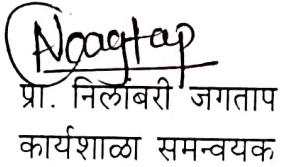 Njagtap
प्रा. निलांबरी जगताप
कार्यशाळा समन्वयक